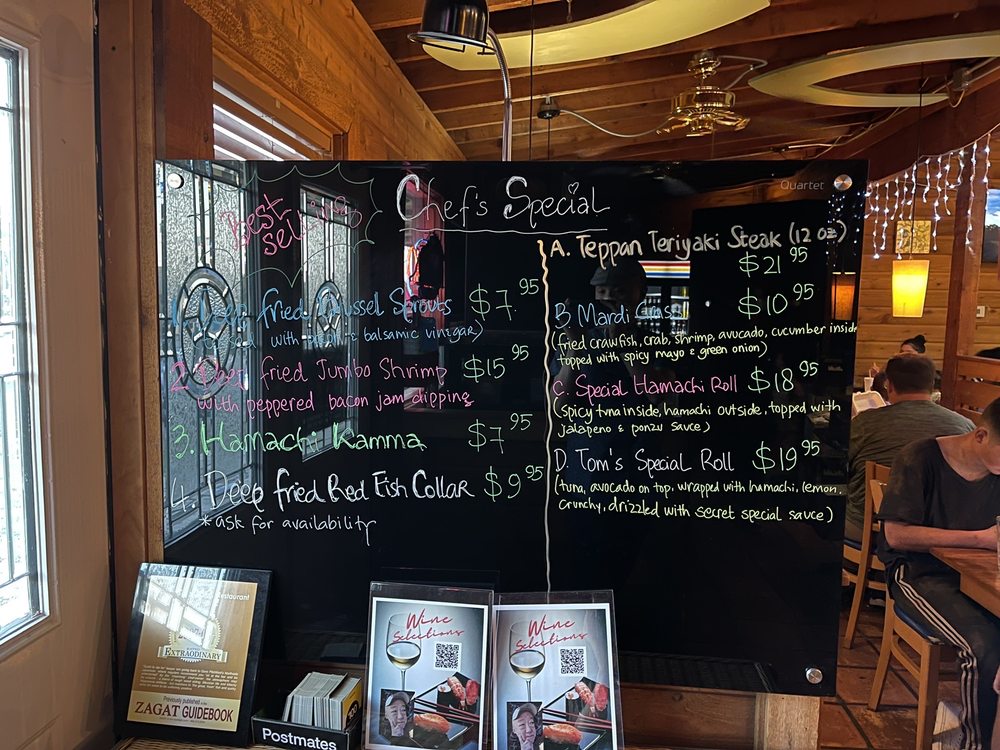 Quartet
Best
selling
Chef's Special
1. Deep fried Brussel Sprouts $7.95
with bacon & balsamic vinegar)
2. Deep fried Jumbo Shrimp $15.95
with peppered bacon jam dipping
3. Hamachi Kamma $7.95
4. Deep fried Red Fish Collar $9.95
*ask for availability
A. Teppan Teriyaki Steak (12 oz)
$21.95
B. Mardi Grass $10.95
(fried crawfish, crab, shrimp, avocado, cucumber inside
topped with spicy mayo & green onion)
C. Special Hamachi Roll $18.95
(spicy tuna inside, hamachi outside, topped with
jalapeno & ponzu sauce)
D. Tom's Special Roll $19.95
(tuna, avocado on top, wrapped with hamachi, lemon,
crunchy, drizzled with secret special sauce)
Restaurant
EXTRAODINARY
Previously published in the
ZAGAT GUIDEBOOK
Postmates
Wine
Selections
Wine
Selections